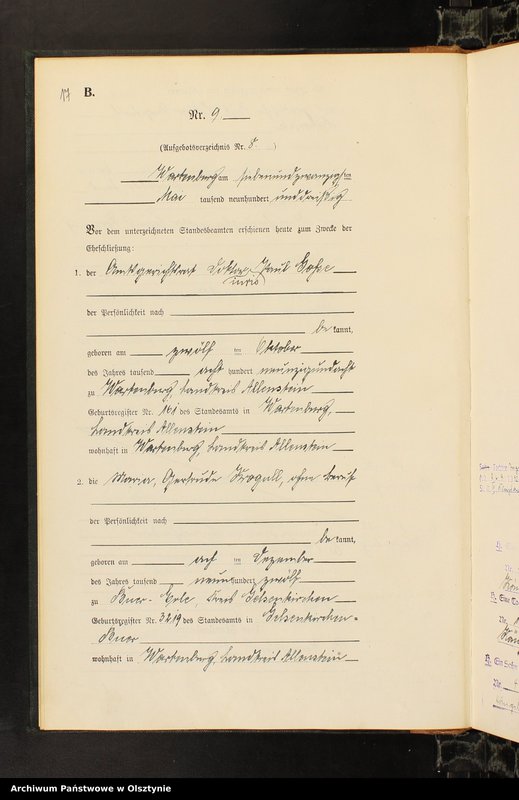 17 B.
Nr. 9
(Aufgebotsverzeichnis Nr. 8. )
Wartenberg am siebenundzwanzigsten
Mai tausend neunhundert unddreißig
Vor dem unterzeichneten Standesbeamten erschienen heute zum Zwecke der
Eheschließung:
1. der Amtsgerichtsrat Doktor Paul
juris
der Persönlichkeit nach
bekannt,
geboren am zwölf ten Oktober
des Jahres tausend acht hundert neunzigundacht
zu Wartenberg Landkreis Allenstein
Geburtsregister Nr. 161 des Standesamts in Wartenberg,
Landkreis Allenstein
wohnhaft in Wartenberg, Landkreis Allenstein
2. die Maria, Gertrude Krogull, ohne Beruf
der Persönlichkeit nach
bekannt,
geboren am acht ten Dezember
des Jahres tausend neunhundert zwölf
zu Buer-Erle, Kreis Gelsenkirchen
Geburtsregister Nr. 3219 des Standesamts in Gelsenkirchen-
Buer
wohnhaft in Wartenberg, Landkreis Allenstein
Archiwum Państwowe w Olsztynie